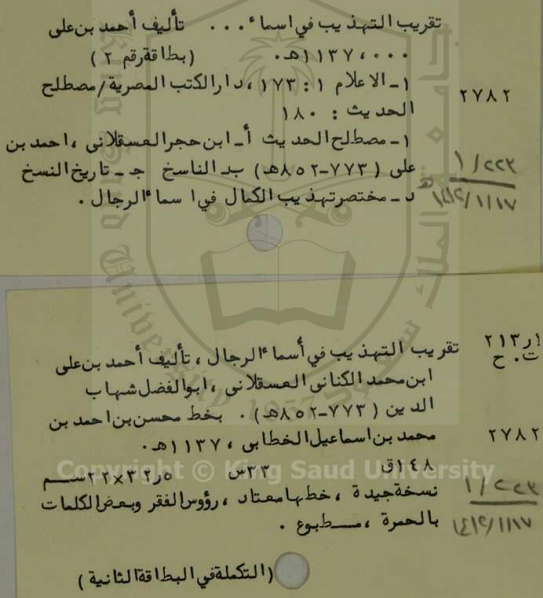 تقريب التهذيب في اسماء ... تأليف أحمد بن على
... ، ١١٣٧هـ. (بطاقة رقم ٢)
١ـ الاعلام ١ : ١٧٣ ، دار الكتب المصرية / مصطلح
الحديث : ١٨٠
٢٧٨٢
١ـ مصطلح الحديث أـ ابن حجر العسقلانى ، احمد بن
على (٧٧٣-٨٥٢هـ) بـ الناسخ جـ تاريخ النسخ
د ـ مختصر تهذيب الكمال في اسماء الرجال .
١/٢٢٣
١٤١٢/١/١٧هـ
٢١٣ر١
ت . ح
تقريب التهذيب في أسماء الرجال ، تأليف أحمد بن على
ابن محمد الكنانى العسقلانى ، ابوالفضل شهاب
الدين (٧٧٣-٨٥٢هـ) . بخط محسن بن احمد بن
محمد بن اسماعيل الخطابى ، ١١٣٧هـ.
٢٧٨٢
١٤٨ق ٣٣س ٣٢٫٥×٢٢سم
نسخة جيدة ، خطها معتاد ، رؤوس الفقر وبعض الكلمات
بالحمرة ، مطبوع .
١/٢٢٣
١٤١٢/١/١٧
(التكملة في البطاقة الثانية)
Copyright © King Saud University
1957